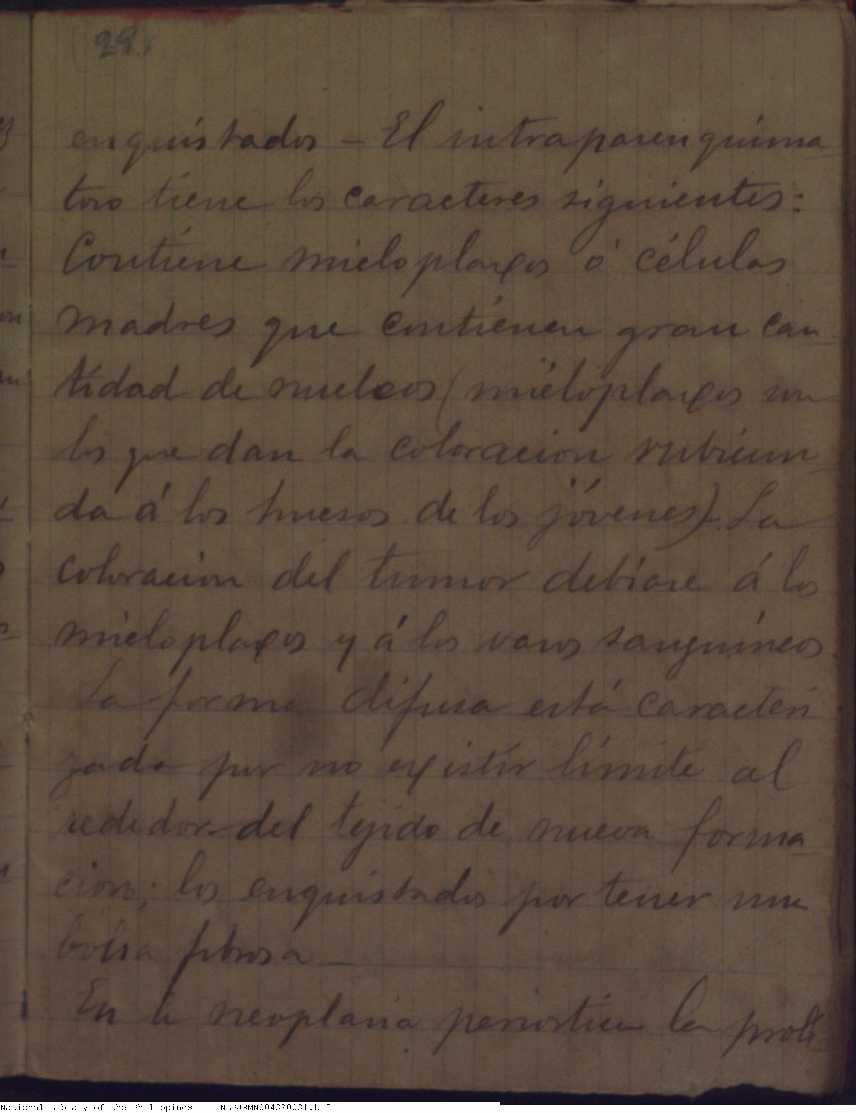 28)
enquistados — El intraparenquima
toso tiene los caracteres siguientes:
Contiene mieloplaxos ó células
madres que contienen gran can
tidad de nucleos (mieloplaxos son
los que dan la coloracion rubicun
da á los huesos de los jóvenes). La
coloracion del tumor debiose á los
mieloplaxos y á los vasos sanguíneos.
La forma difusa está caracteri
zada por no existir límite al
rededor del tejido de nueva forma
cion; los enquistados por tener una
bolsa fibrosa —
En la neoplasia periostica la proli
National Library of the Philippines